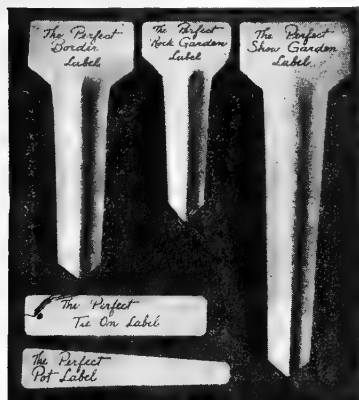 "The Perfect"
Border
Label
The Perfect
Rock Garden
Label
The Perfect
Show Garden
Label
The Perfect
Tie On Label
The Perfect
Pot Label